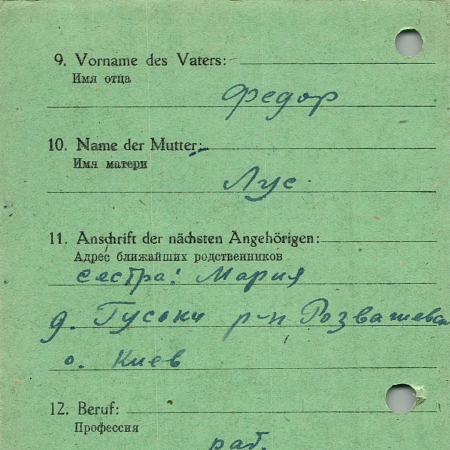 9. Vorname des Vaters:
Имя отца
Федор
10. Name der Mutter:
Имя матери
Лус
11. Anschrift der nächsten Angehörigen:
Адрес ближайших родственников
сестра: Мария
д. Гуськи р-н
о. Киев
12. Beruf:
Профессия
раб.